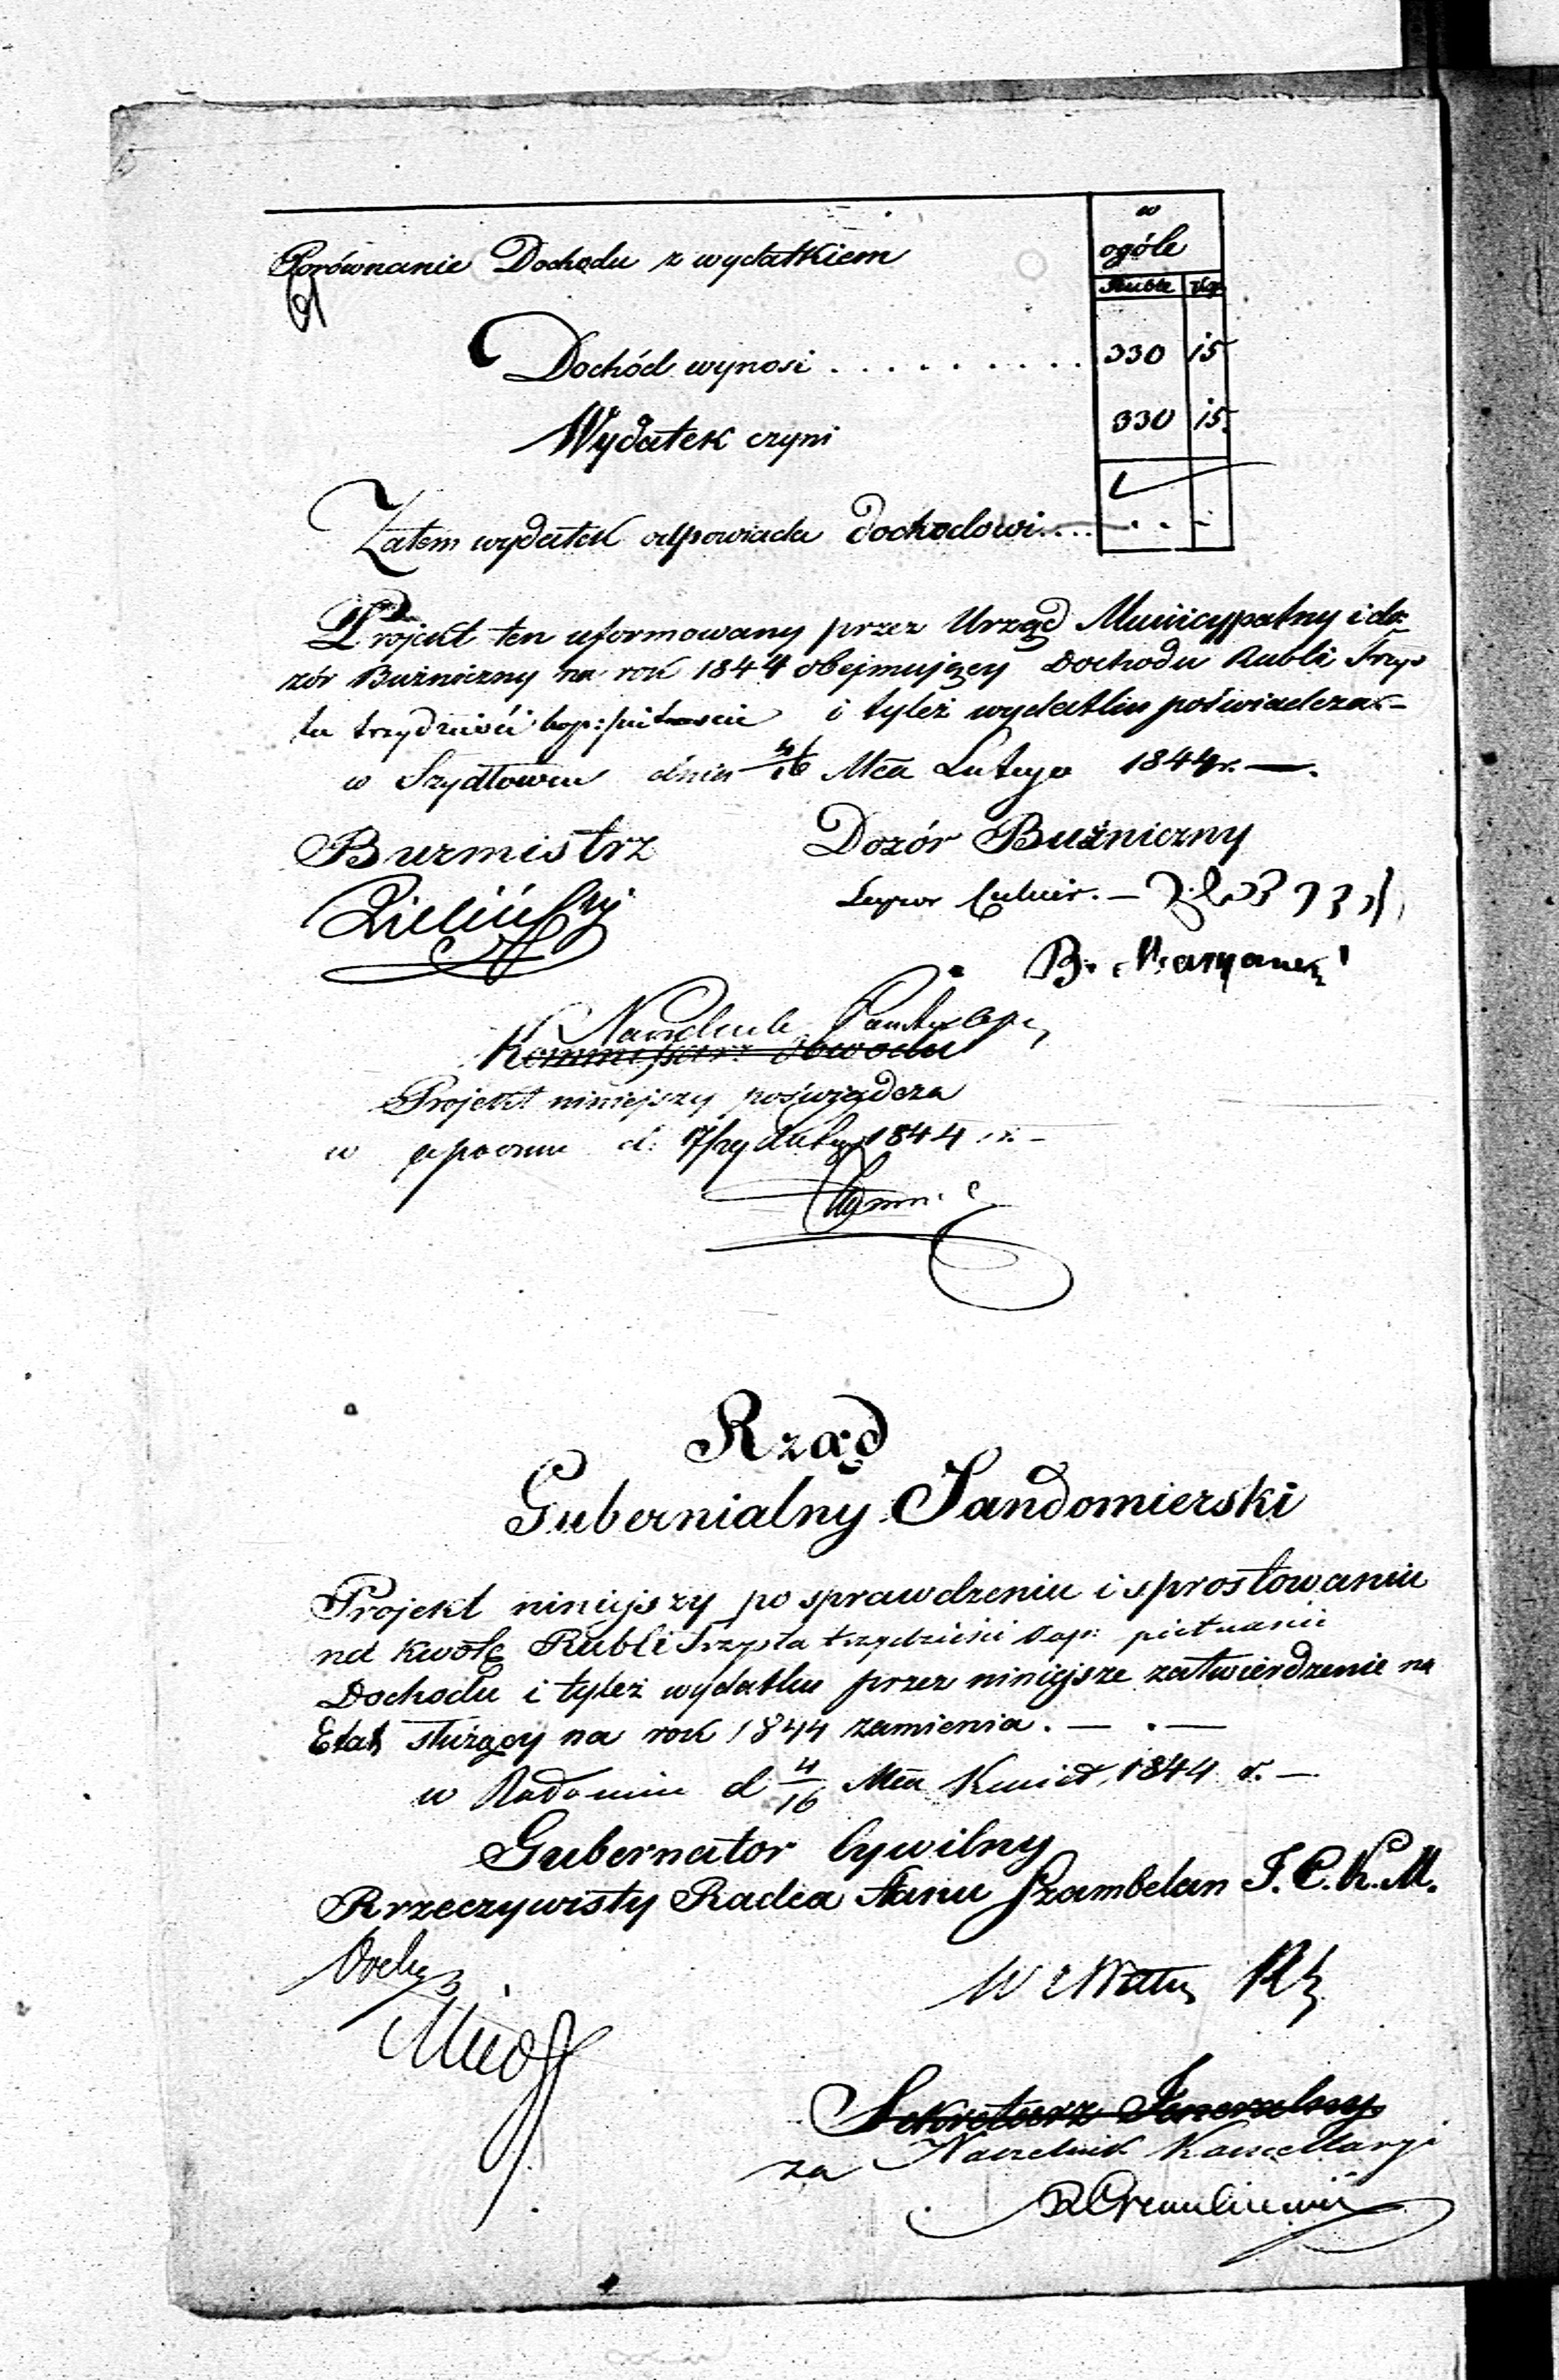 w
ogóle
Porównanie Dochodu z wydatkiem
Ruble kop
Dochód wynosi . . . . . . . . . 330 15
Wydatek czyni 330 15.
Zatem wydatek odpowiada dochodowi....
Projekt ten uformowany przez Urząd Municypalny i do-
zór Bużniczny na rok 1844 obejmujący Dochodu Rubli Trzys
ta trzydzieści kop: pietnascie i tyleż wydatku poświadcza.—
w Szydłowcu dnia 4/16 Mca Lutego 1844 r.—.
Burmistrz Dozór Bużniczny
Zieliński
B.
Naczelnik Powiatu
Kommissarz Obwodu
Projekt niniejszy poświadcza
w Opocznie d: 17/29 Lutego 1844 r.—
Rząd
Gubernialny Sandomierski
Projekt niniejszy po sprawdzeniu i sprostowaniu
na kwotę Rubli Trzysta trzydzieści kop: pietnaście
Dochodu i tyleż wydatku przez niniejsze zatwierdzenie na
Etat służący na rok 1844 zamienia. — . —
w Radomiu d 4/16 Mca Kwiet. 1844 r. —
Gubernator Cywilny
Rrzeczywisty Radca Stanu Szambelan J. C. K. M.
Sekretarz Jeneralny
za Naczelnik Kancellaryi